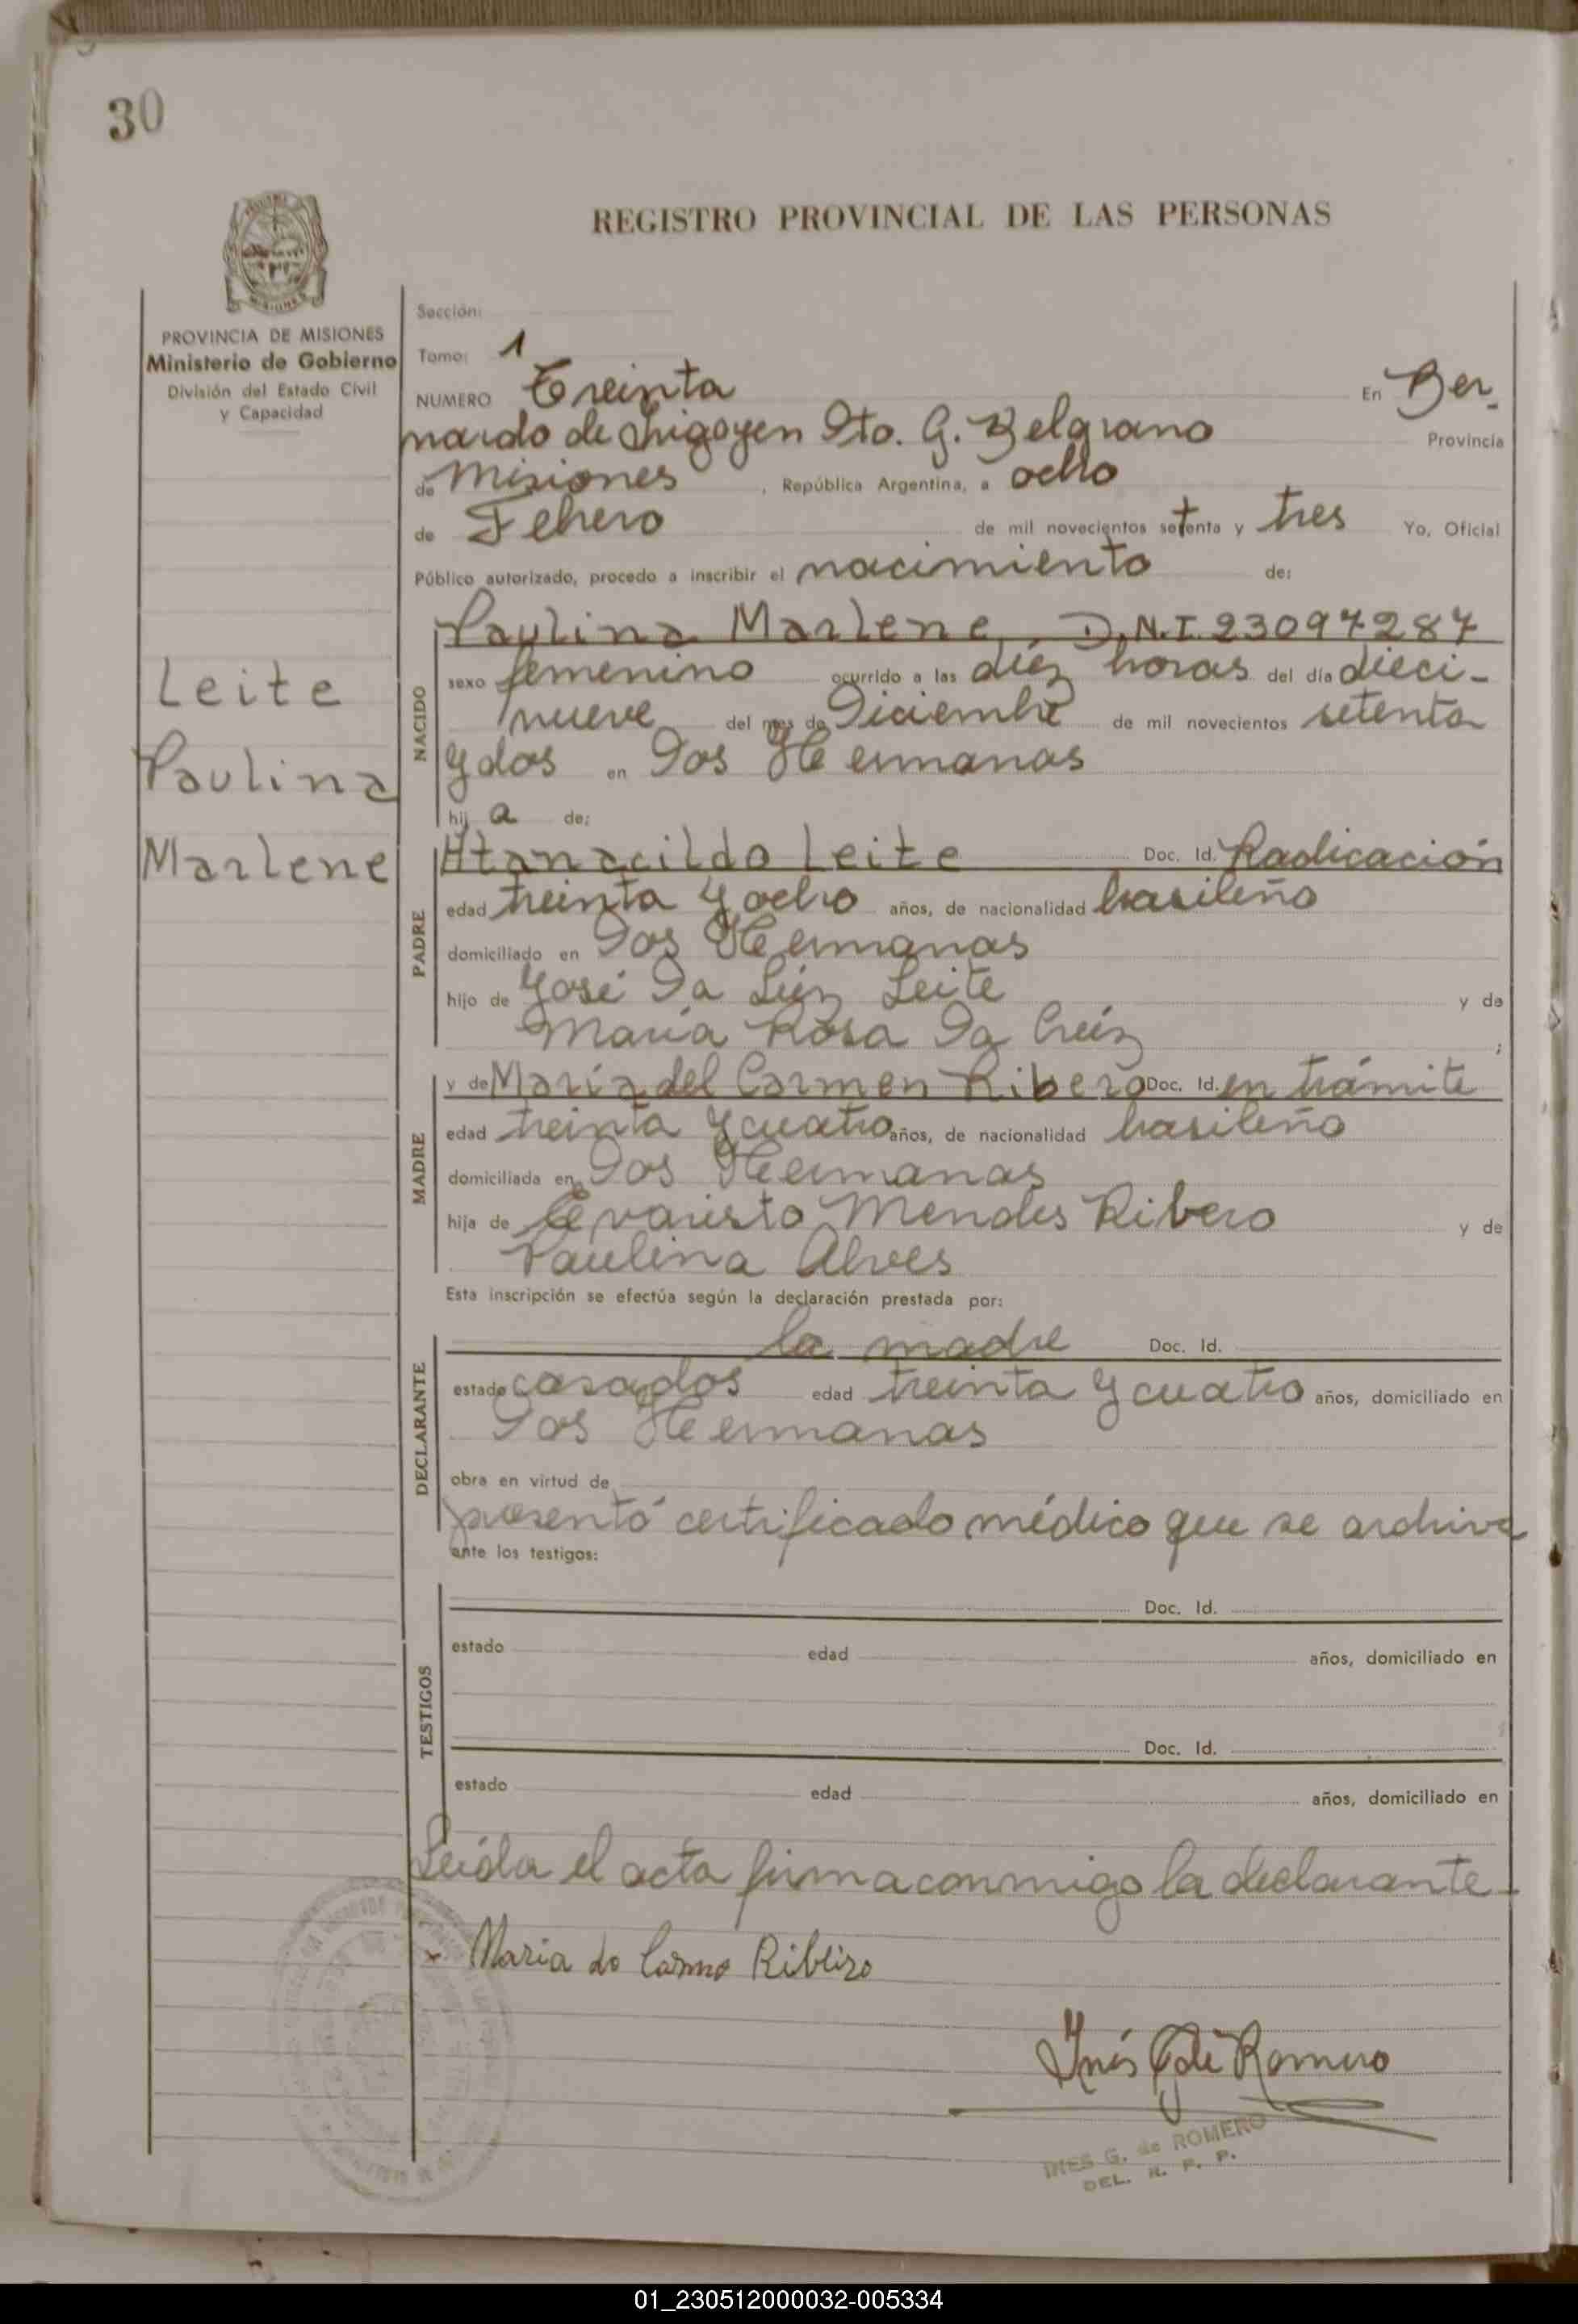 30
REGISTRO PROVINCIAL DE LAS PERSONAS
MISIONES
PROVINCIA DE MISIONES
Ministerio de Gobierno
División del Estado Civil
y Capacidad
Leite
Paulina
Marlene
Sección:
Tomo: 1
NUMERO Treinta En Ber-
nardo de Irigoyen Dto. G. Belgrano Provincia
de Misiones, República Argentina, a ocho
de Febrero de mil novecientos setenta y tres Yo, Oficial
Público autorizado, procedo a inscribir el nacimiento de:
NACIDO
Paulina Marlene, D.N.I. 23097287
sexo femenino ocurrido a las diéz horas del día dieci-
nueve del mes de Diciembre de mil novecientos setenta
y dos en Dos Hermanas
hij a de:
PADRE
Atanacildo Leite Doc. Id. Radicación
edad treinta y ocho años, de nacionalidad brasileño
domiciliado en Dos Hermanas
hijo de José Da Lúz Leite y de
María Rosa Da Crúz ;
MADRE
y de María del Carmen Ribero Doc. Id. en trámite
edad treinta y cuatro años, de nacionalidad brasileña
domiciliada en Dos Hermanas
hija de Evaristo Mendes Ribero y de
Paulina Alves
Esta inscripción se efectúa según la declaración prestada por:
DECLARANTE
la madre Doc. Id.
estado casados edad treinta y cuatro años, domiciliado en
Dos Hermanas
obra en virtud de
presentó certificado médico que se archiva
ante los testigos:
TESTIGOS
Doc. Id.
estado edad años, domiciliado en
Doc. Id.
estado edad años, domiciliado en
Leída el acta firma conmigo la declarante-
x Maria do Carmo Ribeiro
Inés G de Romero
INES G. de ROMERO
DEL. R. P. P.
01_230512000032-005334